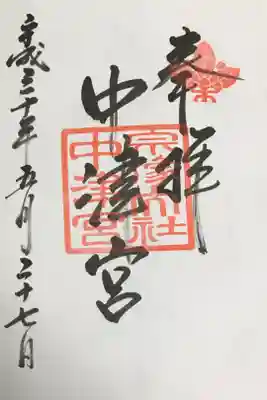 奉拝
中津宮
宗像大社
中津宮
平成三十年五月二十七日